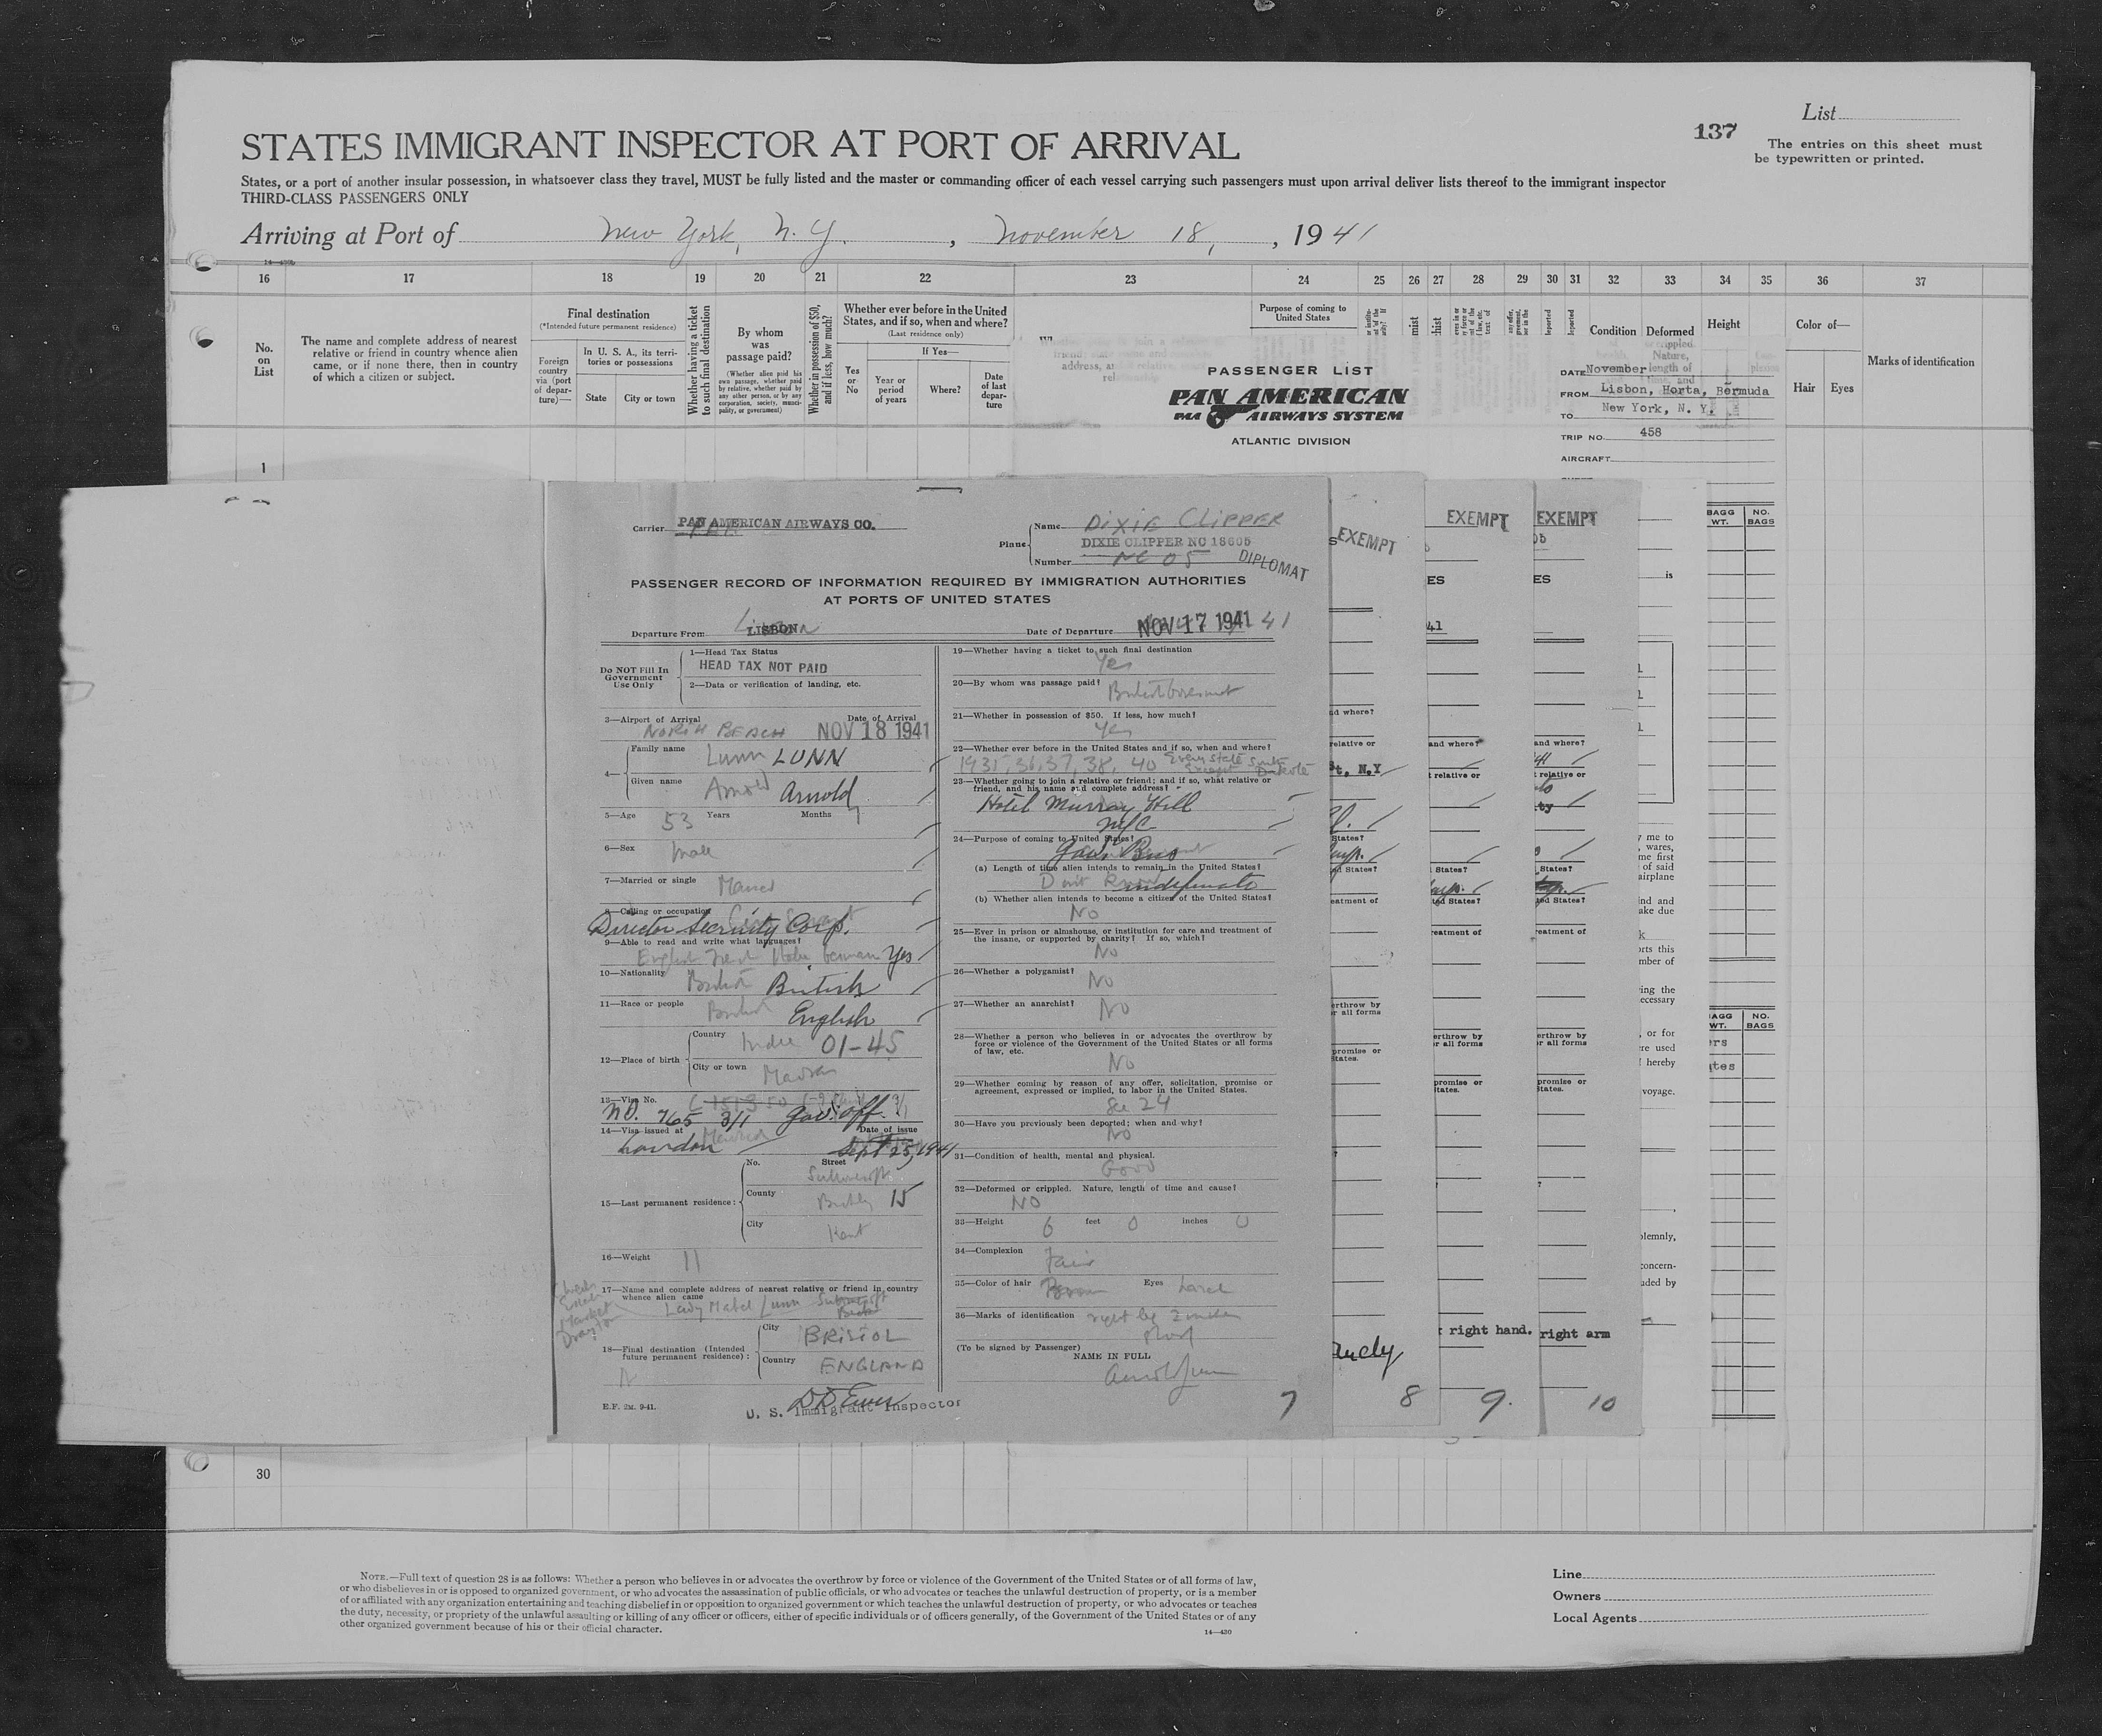 List
137
The entries on this sheet must
be typewritten or printed.
STATES IMMIGRANT INSPECTOR AT PORT OF ARRIVAL
States, or a port of another insular possession, in whatsoever class they travel, MUST be fully listed and the master or commanding officer of each vessel carrying such passengers must upon arrival deliver lists thereof to the immigrant inspector
THIRD-CLASS PASSENGERS ONLY
Arriving at Port of New York, N. Y. , November 18, , 1941
16 17 18 19 20 21 22 23 24 25 26 27 28 29 30 31 32 33 34 35 36 37
No.
on
List
The name and complete address of nearest
relative or friend in country whence alien
came, or if none there, then in country
of which a citizen or subject.
Final destination
(*Intended future permanent residence)
Foreign
country
via (port
of depar-
ture)—
In U. S. A., its terri-
tories or possessions
State
City or town
Whether having a ticket
to such final destination
By whom
was
passage paid?
(Whether alien paid his
own passage, whether paid
by relative, whether paid by
any other person, or by any
corporation, society, munici-
pality, or government)
Whether in possession of $50,
and if less, how much?
Whether ever before in the United
States, and if so, when and where?
(Last residence only)
Yes
or
No
If Yes—
Year or
period
of years
Where?
Date
of last
depar-
ture
Purpose of coming to
United States
Condition
Deformed
Height
Color of—
Hair
Eyes
Marks of identification
PASSENGER LIST
PAN AMERICAN
PAA AIRWAYS SYSTEM
ATLANTIC DIVISION
DATE November
FROM Lisbon, Horta, Bermuda
TO New York, N. Y.
TRIP NO. 458
AIRCRAFT
1
Carrier PAN AMERICAN AIRWAYS CO.
Plane
Name DIXIE CLIPPER
DIXIE CLIPPER NC 18605
Number NC 05
DIPLOMAT
PASSENGER RECORD OF INFORMATION REQUIRED BY IMMIGRATION AUTHORITIES
AT PORTS OF UNITED STATES
Departure From LISBON
Date of Departure NOV 17 1941 41
Do NOT Fill In
Government
Use Only
1—Head Tax Status
HEAD TAX NOT PAID
2—Data or verification of landing, etc.
3—Airport of Arrival
Date of Arrival
NORTH BEACH NOV 18 1941
4—
Family name Lunn LUNN
Given name Arnold Arnold
5—Age 53 Years Months
6—Sex Male
7—Married or single Married
8—Calling or occupation
Director Security Corp.
9—Able to read and write what languages?
English German Yes
10—Nationality British British
11—Race or people British English
12—Place of birth
Country India 01-45
City or town Madras
13—Visa No.
No. 765 3/1 Gov. Off.
14—Visa issued at London
Date of issue Sept 25, 1941
15—Last permanent residence:
No. Street
County 15
City Kent
16—Weight 11
17—Name and complete address of nearest relative or friend in country
whence alien came
Lady Mabel Lunn
18—Final destination (Intended
future permanent residence):
City BRISTOL
Country ENGLAND
E.F. 2M. 9-41.
U. S. Immigrant Inspector
19—Whether having a ticket to such final destination
Yes
20—By whom was passage paid?
British Government
21—Whether in possession of $50. If less, how much?
Yes
22—Whether ever before in the United States and if so, when and where?
1935, 36, 37, 38, 40 Every State except South Dakota
23—Whether going to join a relative or friend; and if so, what relative or
friend, and his name and complete address?
Hotel Murray Hill
NYC
24—Purpose of coming to United States?
Gov't Bus
(a) Length of time alien intends to remain in the United States?
Don't know indefinite
(b) Whether alien intends to become a citizen of the United States?
No
25—Ever in prison or almshouse, or institution for care and treatment of
the insane, or supported by charity? If so, which?
No
26—Whether a polygamist?
No
27—Whether an anarchist?
No
28—Whether a person who believes in or advocates the overthrow by
force or violence of the Government of the United States or all forms
of law, etc.
No
29—Whether coming by reason of any offer, solicitation, promise or
agreement, expressed or implied, to labor in the United States.
See 24
30—Have you previously been deported; when and why?
No
31—Condition of health, mental and physical.
Good
32—Deformed or crippled. Nature, length of time and cause?
NO
33—Height 6 feet 0 inches 0
34—Complexion Fair
35—Color of hair Brown Eyes hazel
36—Marks of identification right leg 2 inches
short
(To be signed by Passenger)
NAME IN FULL
Arnold Lunn
7
EXEMPT
EXEMPT
EXEMPT
8
9.
10
right hand.
right arm
BAGG
WT.
NO.
BAGS
30
NOTE.—Full text of question 28 is as follows: Whether a person who believes in or advocates the overthrow by force or violence of the Government of the United States or of all forms of law,
or who disbelieves in or is opposed to organized government, or who advocates the assassination of public officials, or who advocates or teaches the unlawful destruction of property, or is a member
of or affiliated with any organization entertaining and teaching disbelief in or opposition to organized government or which teaches the unlawful destruction of property, or who advocates or teaches
the duty, necessity, or propriety of the unlawful assaulting or killing of any officer or officers, either of specific individuals or of officers generally, of the Government of the United States or of any
other organized government because of his or their official character.
14—430
Line
Owners
Local Agents